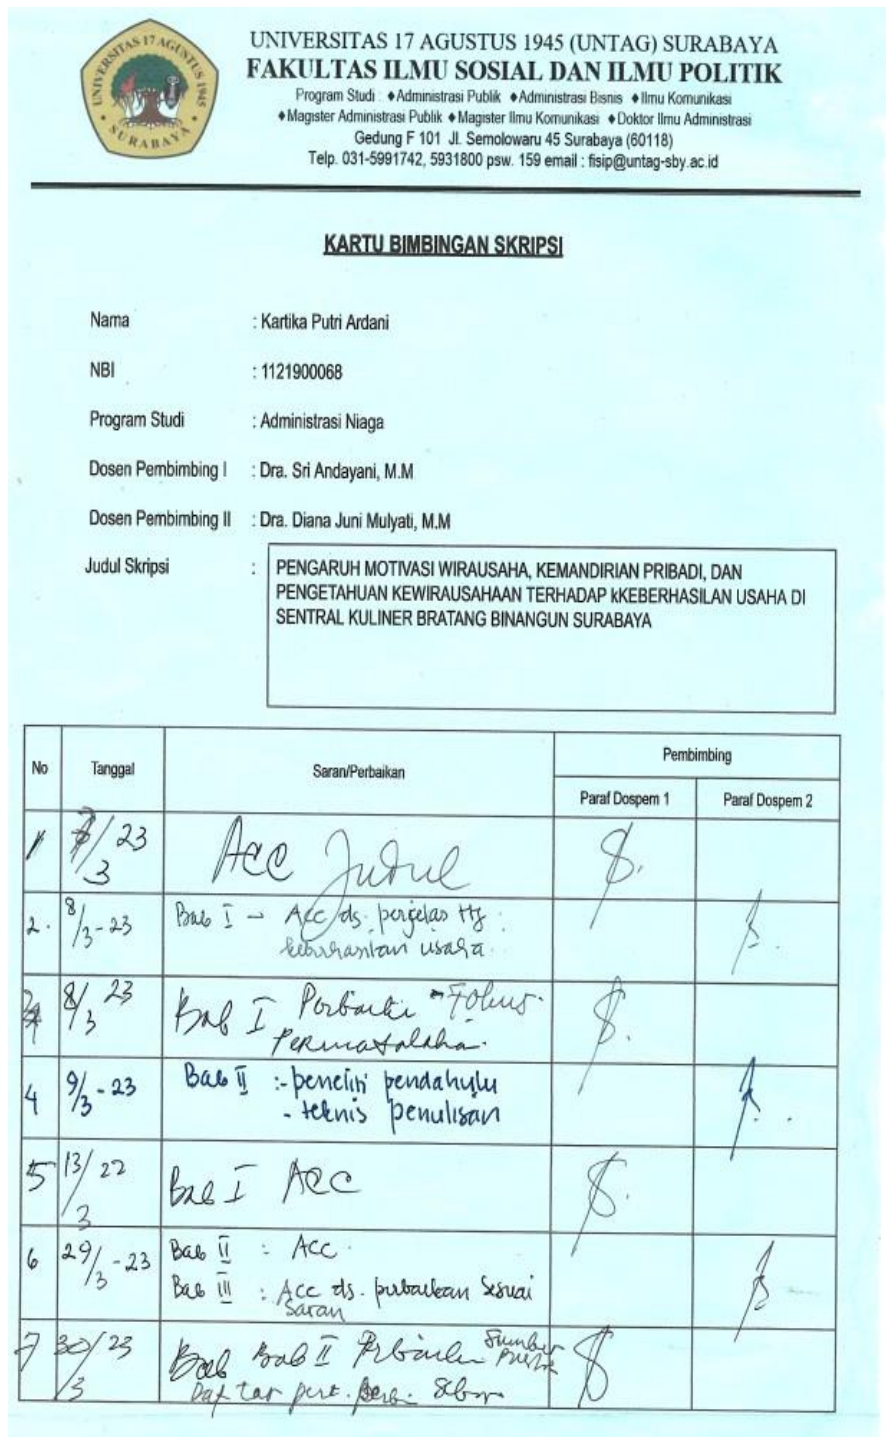 UNIVERSITAS 17 AGUSTUS 1945
SURABAYA
UNIVERSITAS 17 AGUSTUS 1945 (UNTAG) SURABAYA
FAKULTAS ILMU SOSIAL DAN ILMU POLITIK
Program Studi : ♦Administrasi Publik ♦Administrasi Bisnis ♦Ilmu Komunikasi
♦Magister Administrasi Publik ♦Magister Ilmu Komunikasi ♦Doktor Ilmu Administrasi
Gedung F 101 Jl. Semolowaru 45 Surabaya (60118)
Telp. 031-5991742, 5931800 psw. 159 email : fisip@untag-sby.ac.id
KARTU BIMBINGAN SKRIPSI
Nama : Kartika Putri Ardani
NBI : 1121900068
Program Studi : Administrasi Niaga
Dosen Pembimbing I : Dra. Sri Andayani, M.M
Dosen Pembimbing II : Dra. Diana Juni Mulyati, M.M
Judul Skripsi : PENGARUH MOTIVASI WIRAUSAHA, KEMANDIRIAN PRIBADI, DAN
PENGETAHUAN KEWIRAUSAHAAN TERHADAP kKEBERHASILAN USAHA DI
SENTRAL KULINER BRATANG BINANGUN SURABAYA
No Tanggal Saran/Perbaikan Pembimbing
Paraf Dospem 1 Paraf Dospem 2
1 7/3 23 Acc Judul
2. 8/3-23 Bab I - Acc ds. perjelas ttg
keberhasilan usaha.
8/3 23 Bab I Perbaiki - Fokus
Permasalahan.
4 9/3-23 Bab II :- peneliti pendahulu
- teknis penulisan
5 13/3 22 Bab I ACC
6 29/3-23 Bab II : Acc.
Bab III : Acc ds. perbaikan sesuai
saran
7 30/3 23 Bab Bab II Sumber
Daftar